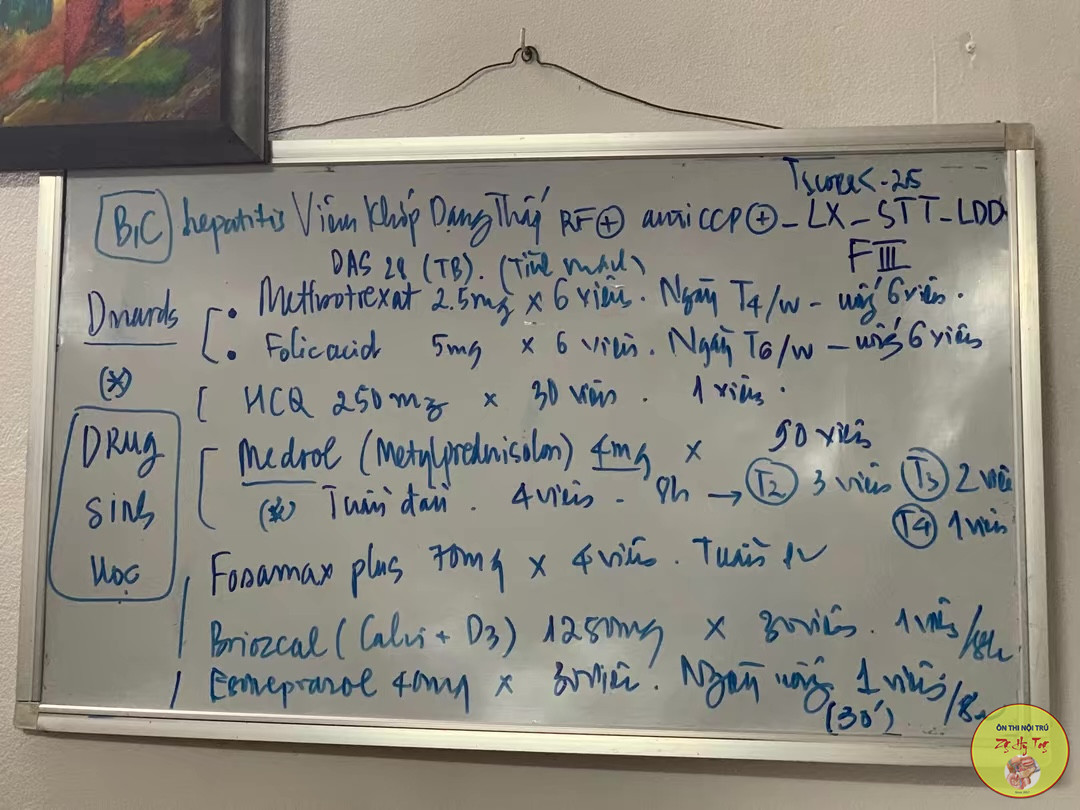 Tscore < -2.5
B,C hepatitis Viêm Khớp Dạng Thấp RF (+) anti CCP (+) - LX - STT - LDD
F III
DAS 28 (TB). (Tĩnh mạch)
Dmards
• Methrotrexat 2.5mg x 6 viên. Ngày T4/w - uống 6 viên.
• Folic acid 5mg x 6 viên. Ngày T6/w - uống 6 viên
(*)
HCQ 250mg x 30 viên. 1 viên.
DRUG
Sinh
Học
Medrol (Metylprednisolon) 4mg x 50 viên
(*) Tuần đầu. 4 viên - 8h → T2 3 viên T3 2 viên
T4 1 viên
Fosamax plus 70mg x 4 viên. Tuần
Briozcal (Calci + D3) 1250mg x 30 viên. 1 viên/8h
Esomeprazol 40mg x 30 viên. Ngày uống 1 viên/8h
(30')
ÔN THI NỘI TRÚ